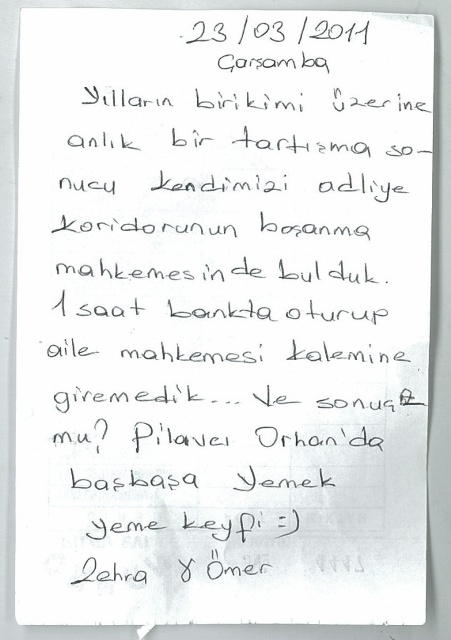 23/03/2011
Çarşamba
Yılların birikimi üzerine
anlık bir tartışma so-
nucu kendimizi adliye
koridorunun boşanma
mahkemesinde bulduk.
1 saat bankta oturup
aile mahkemesi kalemine
giremedik... Ve sonuç
mu? Pilavcı Orhan'da
başbaşa yemek
yeme keyfi =)
Zehra & Ömer